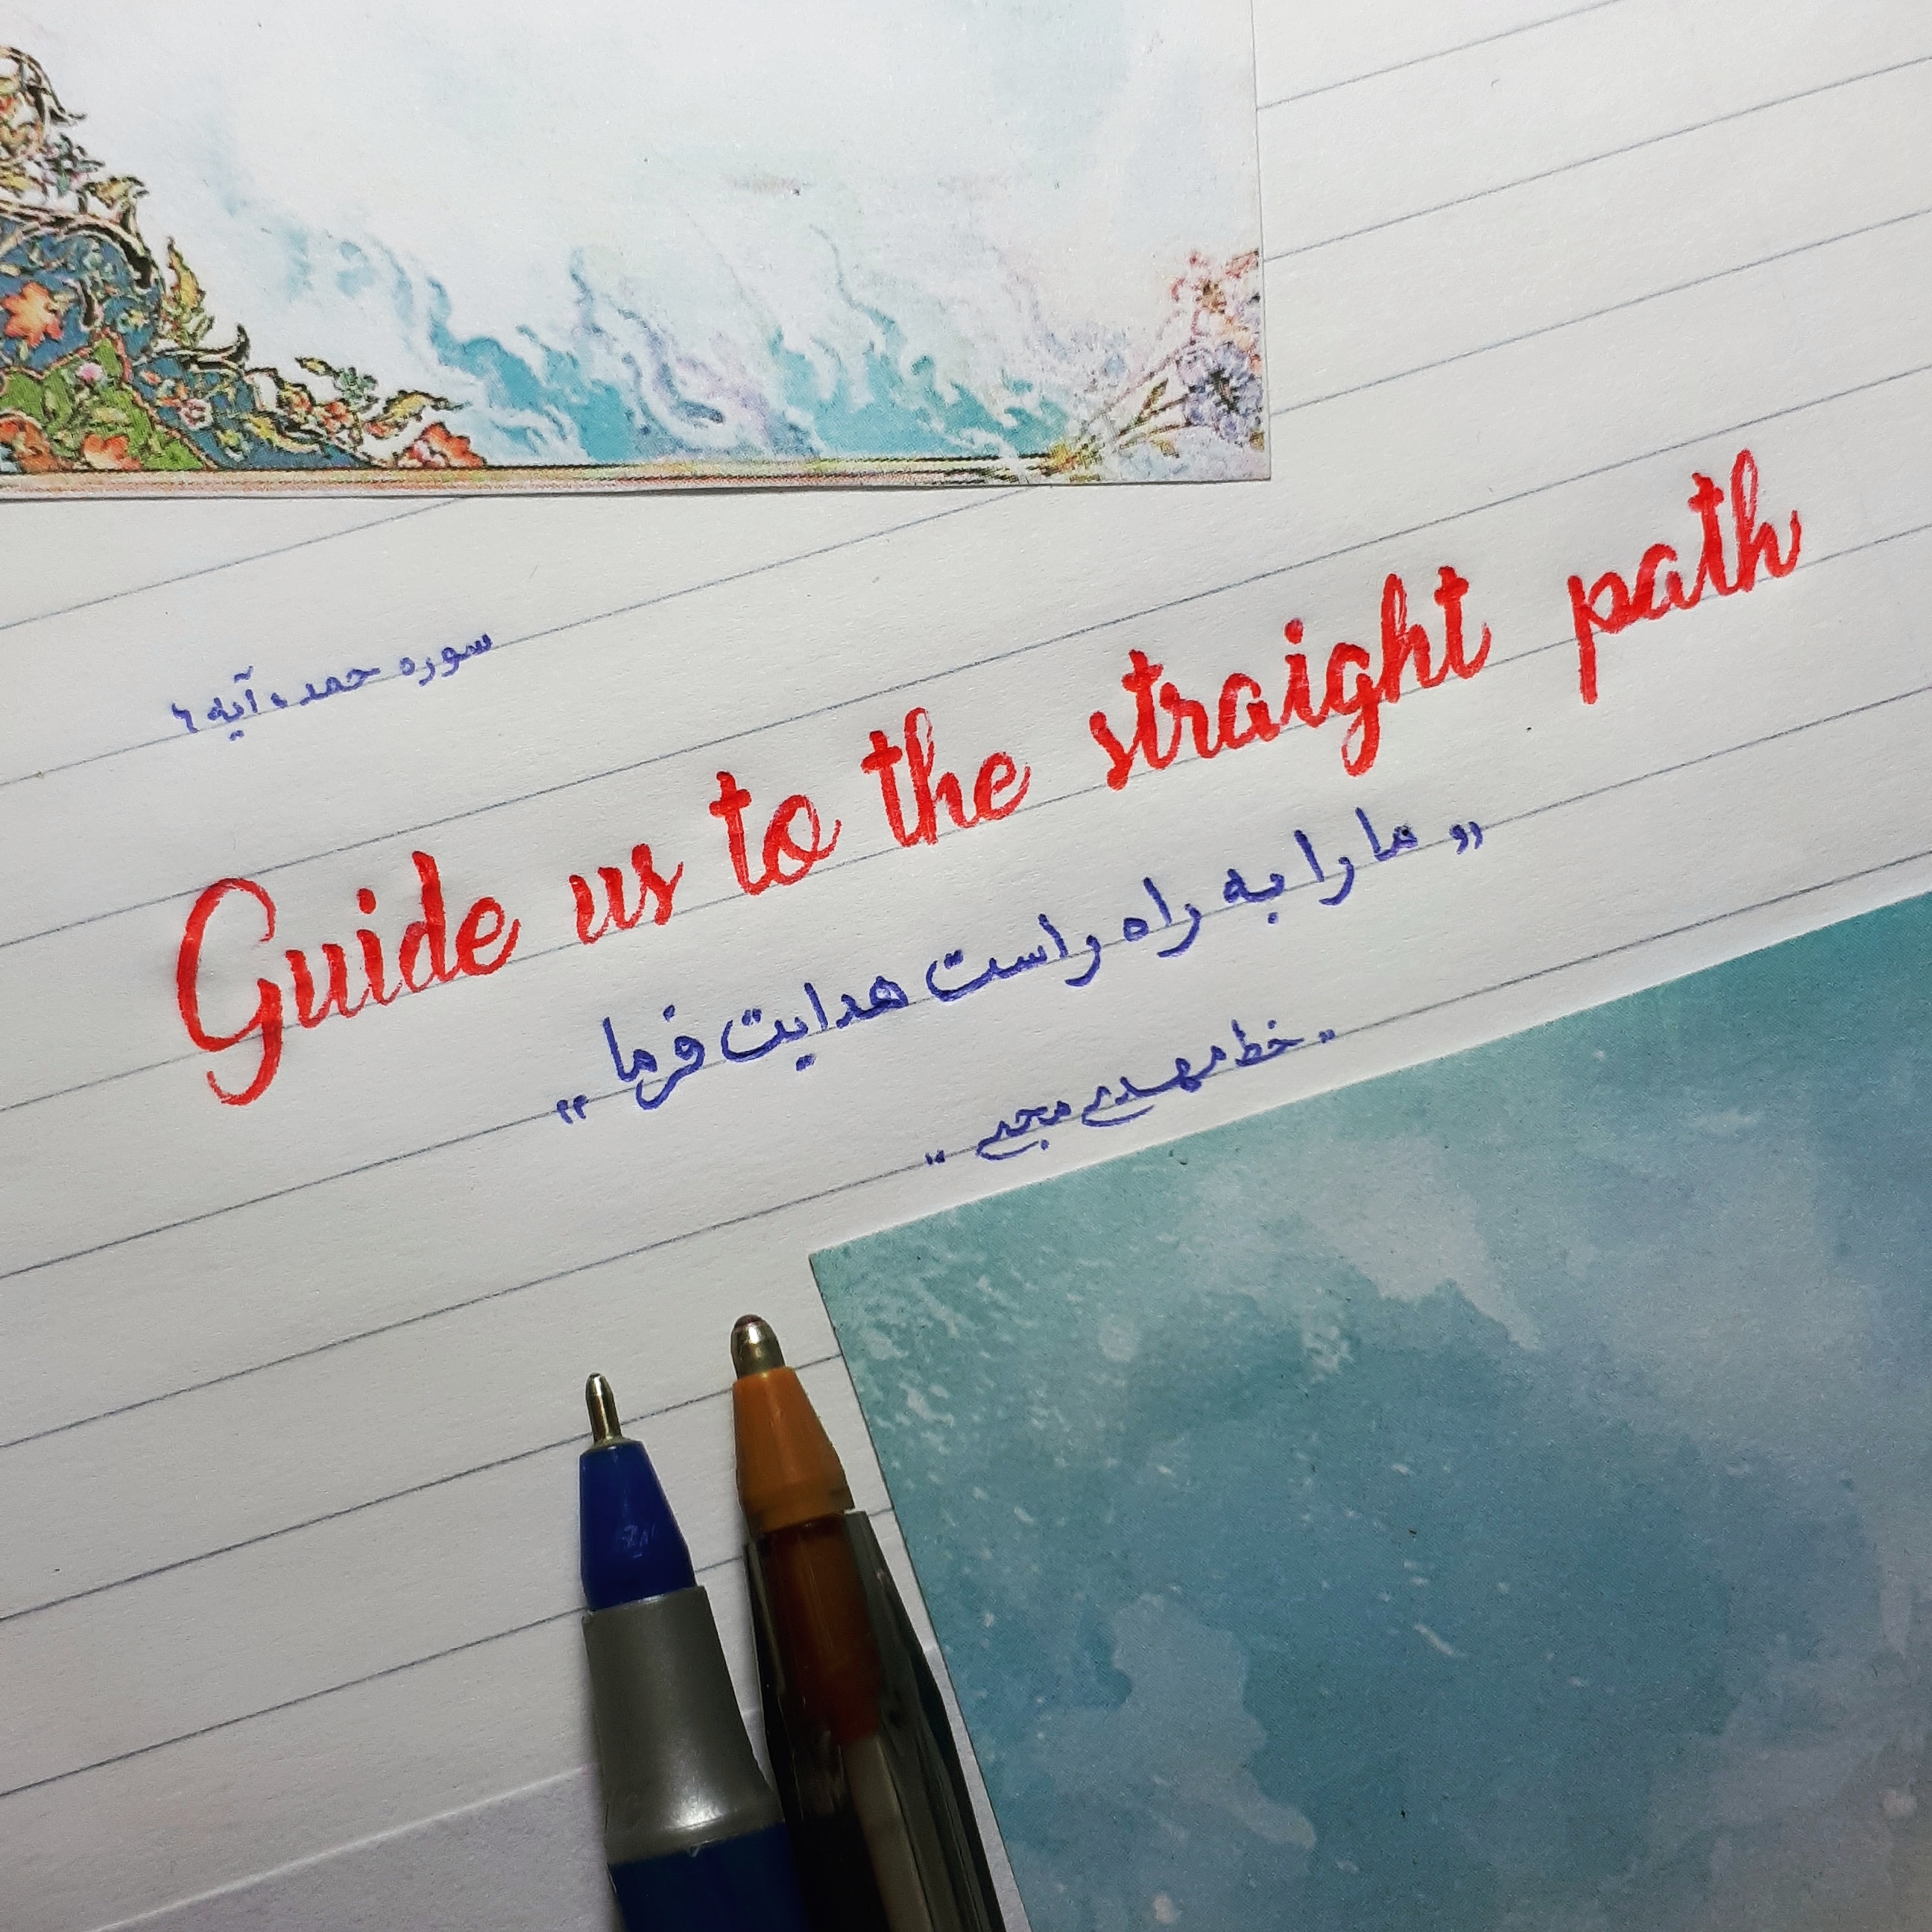 سوره حمد، آیه ۶
Guide us to the straight path
„ ما را به راه راست هدایت فرما “
" خط مهدی "